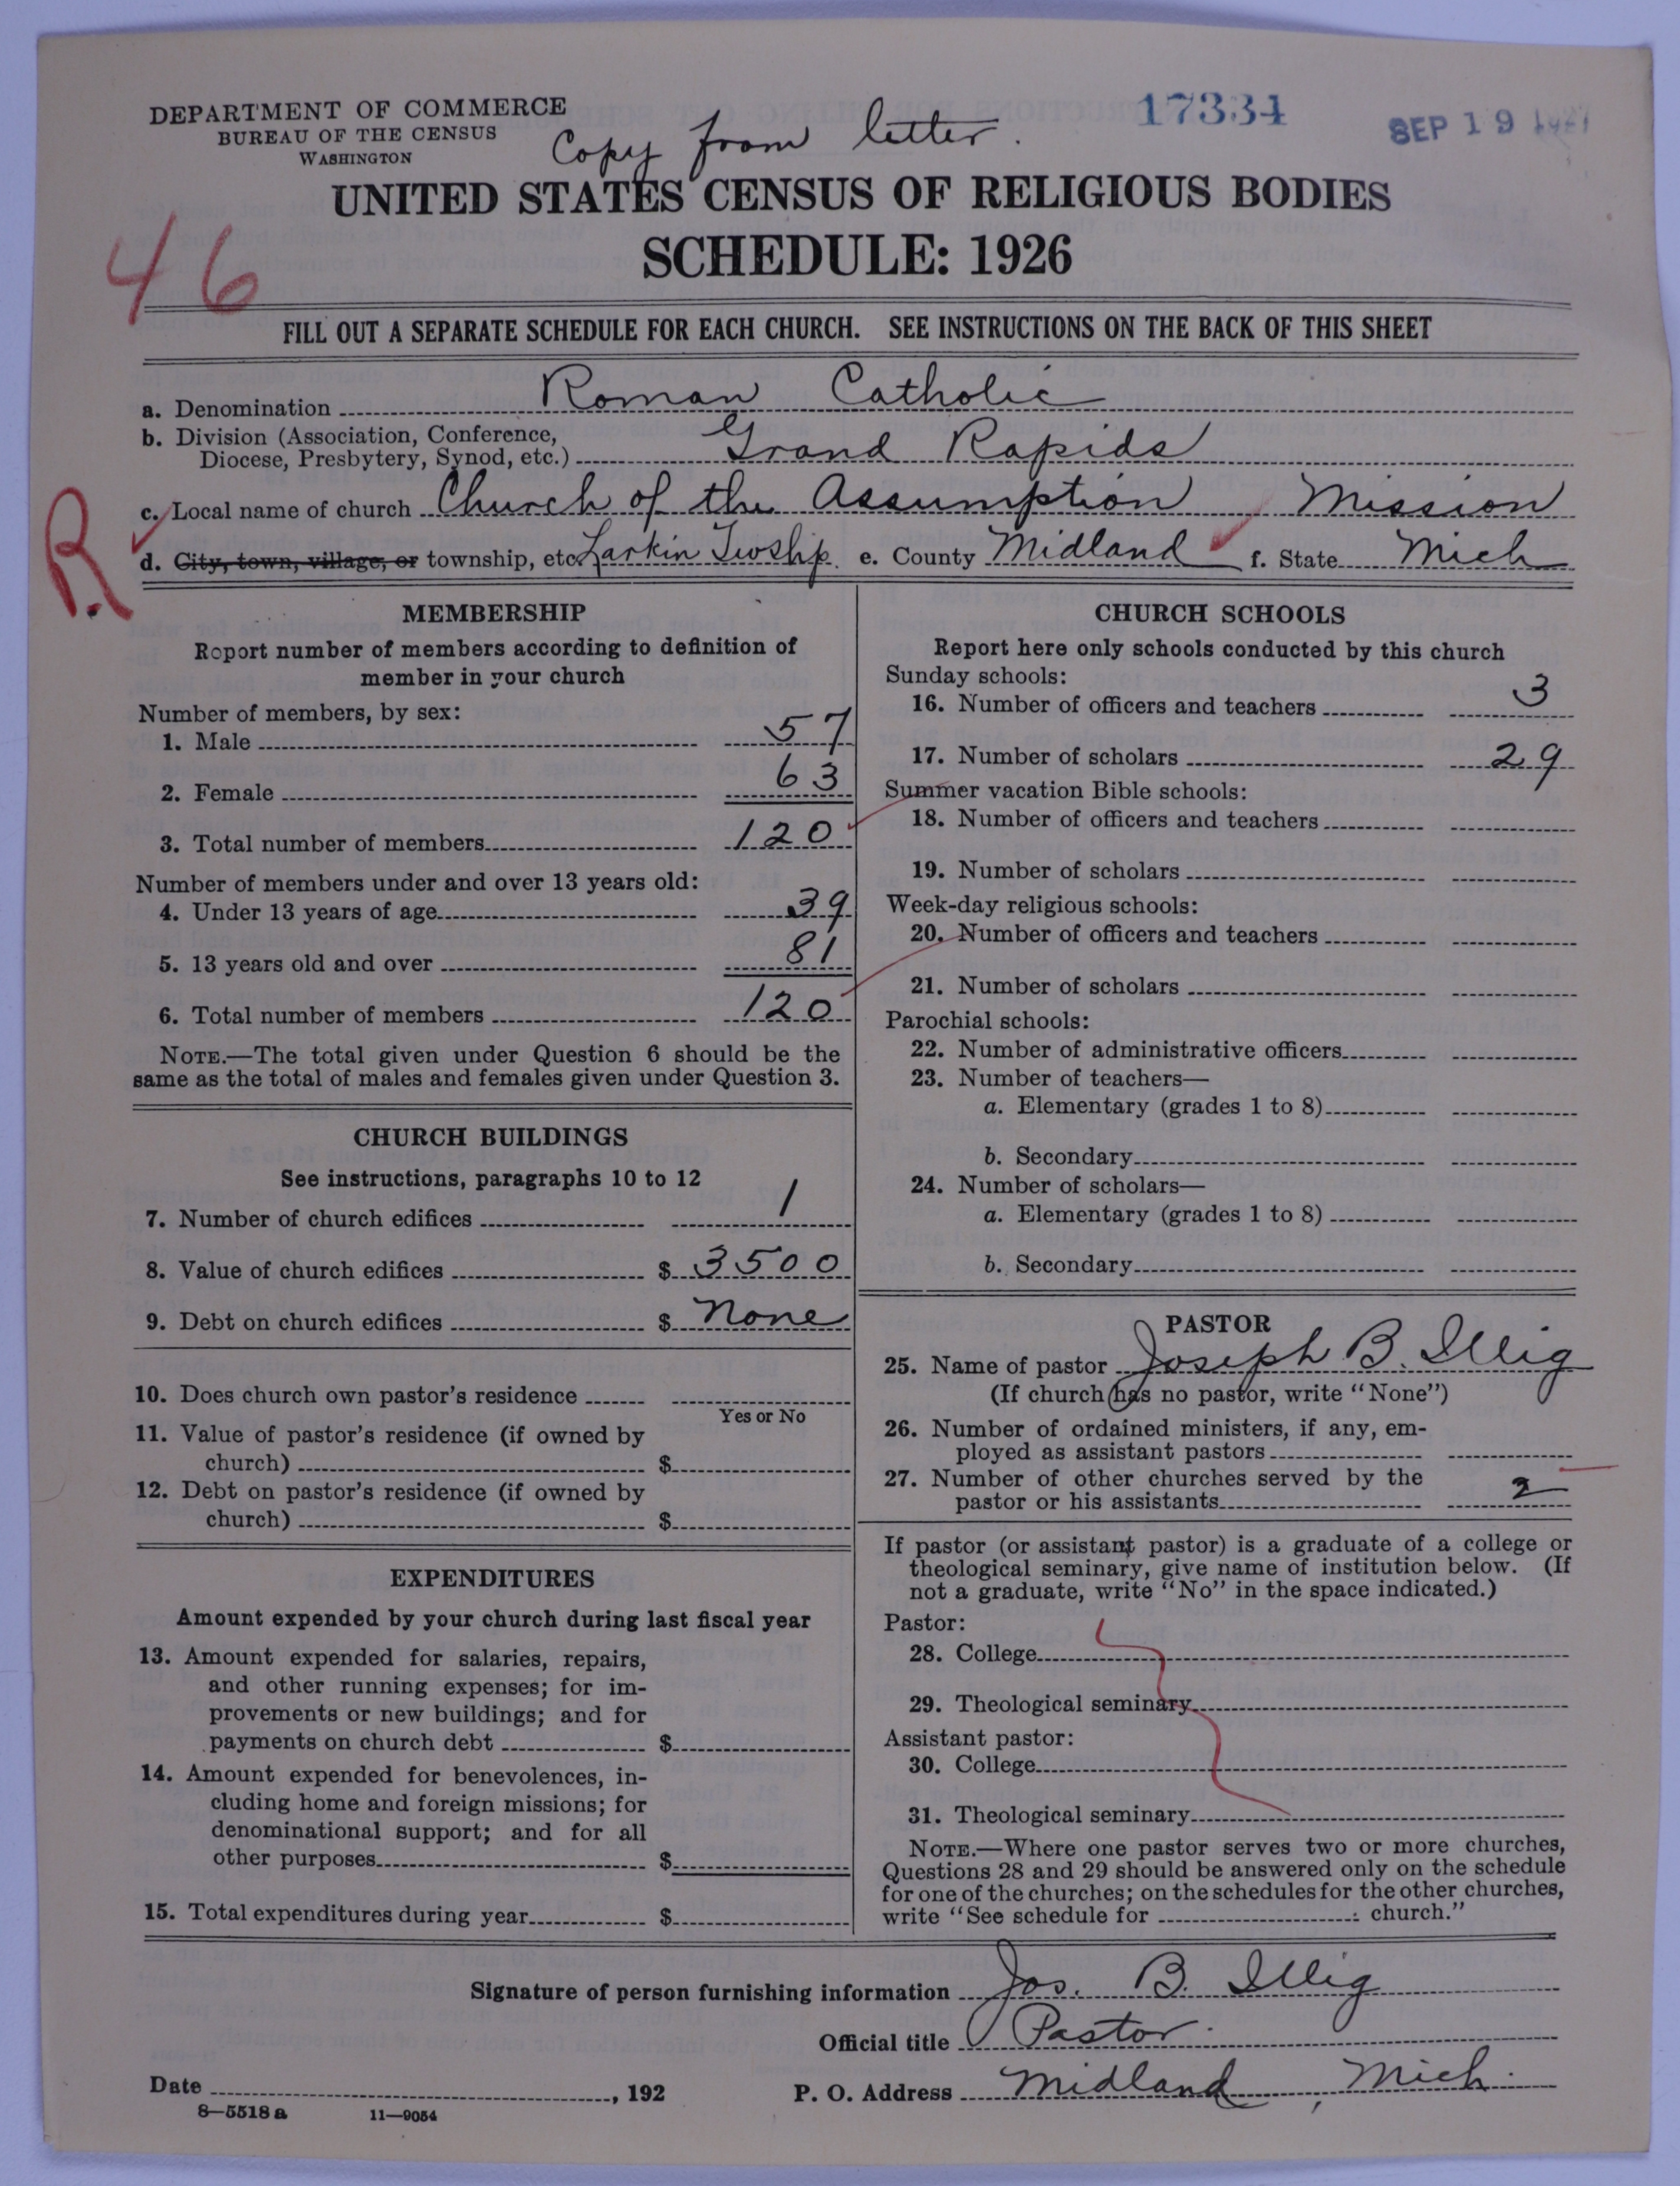 DEPARTMENT OF COMMERCE
BUREAU OF THE CENSUS
WASHINGTON
Copy from letter.
17334
SEP 19 1927
UNITED STATES CENSUS OF RELIGIOUS BODIES
SCHEDULE: 1926
46
FILL OUT A SEPARATE SCHEDULE FOR EACH CHURCH. SEE INSTRUCTIONS ON THE BACK OF THIS SHEET
a. Denomination Roman Catholic
b. Division (Association, Conference,
Diocese, Presbytery, Synod, etc.) Grand Rapids
c. Local name of church Church of the Assumption Mission
R.
d. City, town, village, or township, etc. Larkin Twship. e. County Midland f. State Mich
MEMBERSHIP
Report number of members according to definition of
member in your church
Number of members, by sex:
1. Male 57
2. Female 63
3. Total number of members 120
Number of members under and over 13 years old:
4. Under 13 years of age 39
5. 13 years old and over 81
6. Total number of members 120
NOTE.—The total given under Question 6 should be the
same as the total of males and females given under Question 3.
CHURCH BUILDINGS
See instructions, paragraphs 10 to 12
7. Number of church edifices 1
8. Value of church edifices $ 3500
9. Debt on church edifices $ none
10. Does church own pastor's residence
Yes or No
11. Value of pastor's residence (if owned by
church) $
12. Debt on pastor's residence (if owned by
church) $
EXPENDITURES
Amount expended by your church during last fiscal year
13. Amount expended for salaries, repairs,
and other running expenses; for im-
provements or new buildings; and for
payments on church debt $
14. Amount expended for benevolences, in-
cluding home and foreign missions; for
denominational support; and for all
other purposes $
15. Total expenditures during year $
CHURCH SCHOOLS
Report here only schools conducted by this church
Sunday schools:
16. Number of officers and teachers 3
17. Number of scholars 29
Summer vacation Bible schools:
18. Number of officers and teachers
19. Number of scholars
Week-day religious schools:
20. Number of officers and teachers
21. Number of scholars
Parochial schools:
22. Number of administrative officers
23. Number of teachers—
a. Elementary (grades 1 to 8)
b. Secondary
24. Number of scholars—
a. Elementary (grades 1 to 8)
b. Secondary
PASTOR
25. Name of pastor Joseph B. Illig
(If church has no pastor, write "None")
26. Number of ordained ministers, if any, em-
ployed as assistant pastors
27. Number of other churches served by the
pastor or his assistants 2
If pastor (or assistant pastor) is a graduate of a college or
theological seminary, give name of institution below. (If
not a graduate, write "No" in the space indicated.)
Pastor:
28. College
29. Theological seminary
Assistant pastor:
30. College
31. Theological seminary
NOTE.—Where one pastor serves two or more churches,
Questions 28 and 29 should be answered only on the schedule
for one of the churches; on the schedules for the other churches,
write "See schedule for church."
Signature of person furnishing information Jos. B. Illig
Official title Pastor.
Date , 192 P. O. Address Midland, Mich.
8—5518a 11—9054